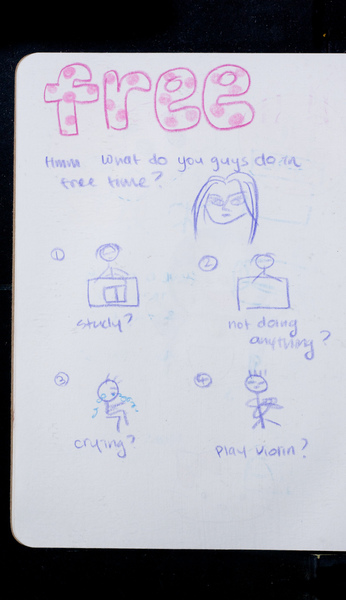 free
Hmm What do you guys do in
free time?
① study?
② not doing
anything?
③ crying?
④ play violin?